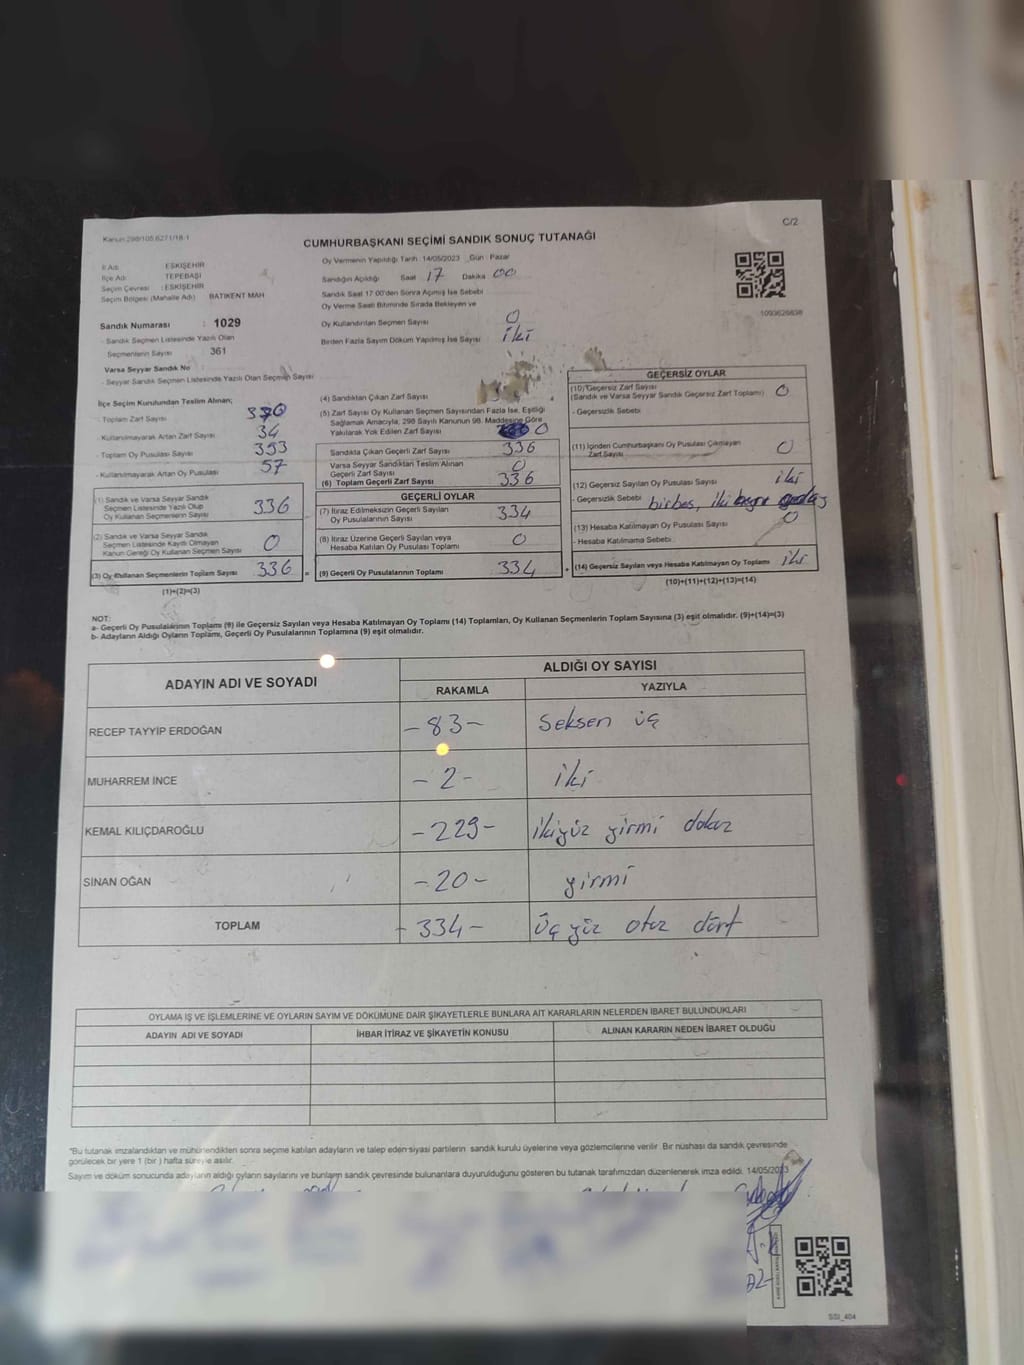 Kanun:298/105,6271/18-1
C/2
CUMHURBAŞKANI SEÇİMİ SANDIK SONUÇ TUTANAĞI
İl Adı: ESKİŞEHİR
İlçe Adı: TEPEBAŞI
Seçim Çevresi : ESKİŞEHİR
Seçim Bölgesi (Mahalle Adı) BATIKENT MAH
Oy Vermenin Yapıldığı Tarih: 14/05/2023 Gün: Pazar
Sandığın Açıldığı Saat 17 Dakika 00
Sandık Saat 17:00'den Sonra Açılmış İse Sebebi
Oy Verme Saati Bitiminde Sırada Bekleyen ve
Oy Kullandırılan Seçmen Sayısı 0
Birden Fazla Sayım Döküm Yapılmış İse Sayısı iki
1093626838
Sandık Numarası : 1029
- Sandık Seçmen Listesinde Yazılı Olan
Seçmenlerin Sayısı 361
Varsa Seyyar Sandık No
- Seyyar Sandık Seçmen Listesinde Yazılı Olan Seçmen Sayısı
İlçe Seçim Kurulundan Teslim Alınan;
- Toplam Zarf Sayısı 370
- Kullanılmayarak Artan Zarf Sayısı 34
- Toplam Oy Pusulası Sayısı 393
- Kullanılmayarak Artan Oy Pusulası 57
(1) Sandık ve Varsa Seyyar Sandık
Seçmen Listesinde Yazılı Olup
Oy Kullanan Seçmenlerin Sayısı 336
(2) Sandık ve Varsa Seyyar Sandık
Seçmen Listesinde Kayıtlı Olmayan
Kanun Gereği Oy Kullanan Seçmen Sayısı 0
(3) Oy Kullanan Seçmenlerin Toplam Sayısı 336
(1)+(2)=(3)
(4) Sandıktan Çıkan Zarf Sayısı
(5) Zarf Sayısı Oy Kullanan Seçmen Sayısından Fazla İse, Eşitliği
Sağlamak Amacıyla; 298 Sayılı Kanunun 98. Maddesine Göre
Yakılarak Yok Edilen Zarf Sayısı 0
Sandıkta Çıkan Geçerli Zarf Sayısı 336
Varsa Seyyar Sandıktan Teslim Alınan
Geçerli Zarf Sayısı 0
(6) Toplam Geçerli Zarf Sayısı 336
GEÇERLİ OYLAR
(7) İtiraz Edilmeksizin Geçerli Sayılan
Oy Pusulalarının Sayısı 334
(8) İtiraz Üzerine Geçerli Sayılan veya
Hesaba Katılan Oy Pusulası Toplamı 0
= (9) Geçerli Oy Pusulalarının Toplamı 334
GEÇERSİZ OYLAR
(10) Geçersiz Zarf Sayısı
(Sandık ve Varsa Seyyar Sandık Geçersiz Zarf Toplamı) 0
- Geçersizlik Sebebi
(11) İçinden Cumhurbaşkanı Oy Pusulası Çıkmayan
Zarf Sayısı 0
(12) Geçersiz Sayılan Oy Pusulası Sayısı iki
- Geçersizlik Sebebi
(13) Hesaba Katılmayan Oy Pusulası Sayısı 0
- Hesaba Katılmama Sebebi
+ (14) Geçersiz Sayılan veya Hesaba Katılmayan Oy Toplamı iki
(10)+(11)+(12)+(13)=(14)
NOT:
a- Geçerli Oy Pusulalarının Toplamı (9) ile Geçersiz Sayılan veya Hesaba Katılmayan Oy Toplamı (14) Toplamları, Oy Kullanan Seçmenlerin Toplam Sayısına (3) eşit olmalıdır. (9)+(14)=(3)
b- Adayların Aldığı Oyların Toplamı, Geçerli Oy Pusulalarının Toplamına (9) eşit olmalıdır.
ADAYIN ADI VE SOYADI
ALDIĞI OY SAYISI
RAKAMLA YAZIYLA
RECEP TAYYİP ERDOĞAN -83- seksen üç
MUHARREM İNCE -2- iki
KEMAL KILIÇDAROĞLU -229- ikiyüz yirmi dokuz
SİNAN OĞAN -20- yirmi
TOPLAM -334- üç yüz otuz dört
OYLAMA İŞ VE İŞLEMLERİNE VE OYLARIN SAYIM VE DÖKÜMÜNE DAİR ŞİKAYETLERLE BUNLARA AİT KARARLARIN NELERDEN İBARET BULUNDUKLARI
ADAYIN ADI VE SOYADI İHBAR İTİRAZ VE ŞİKAYETİN KONUSU ALINAN KARARIN NEDEN İBARET OLDUĞU
*Bu tutanak imzalandıktan ve mühürlendikten sonra seçime katılan adayların ve talep eden siyasi partilerin sandık kurulu üyelerine veya gözlemcilerine verilir. Bir nüshası da sandık çevresinde
görülecek bir yere 1 (bir) hafta süreyle asılır.
Sayım ve döküm sonucunda adayların aldığı oyların sayılarını ve bunların sandık çevresinde bulunanlara duyurulduğunu gösteren bu tutanak tarafımızdan düzenlenerek imza edildi. 14/05/2023
SSI_404